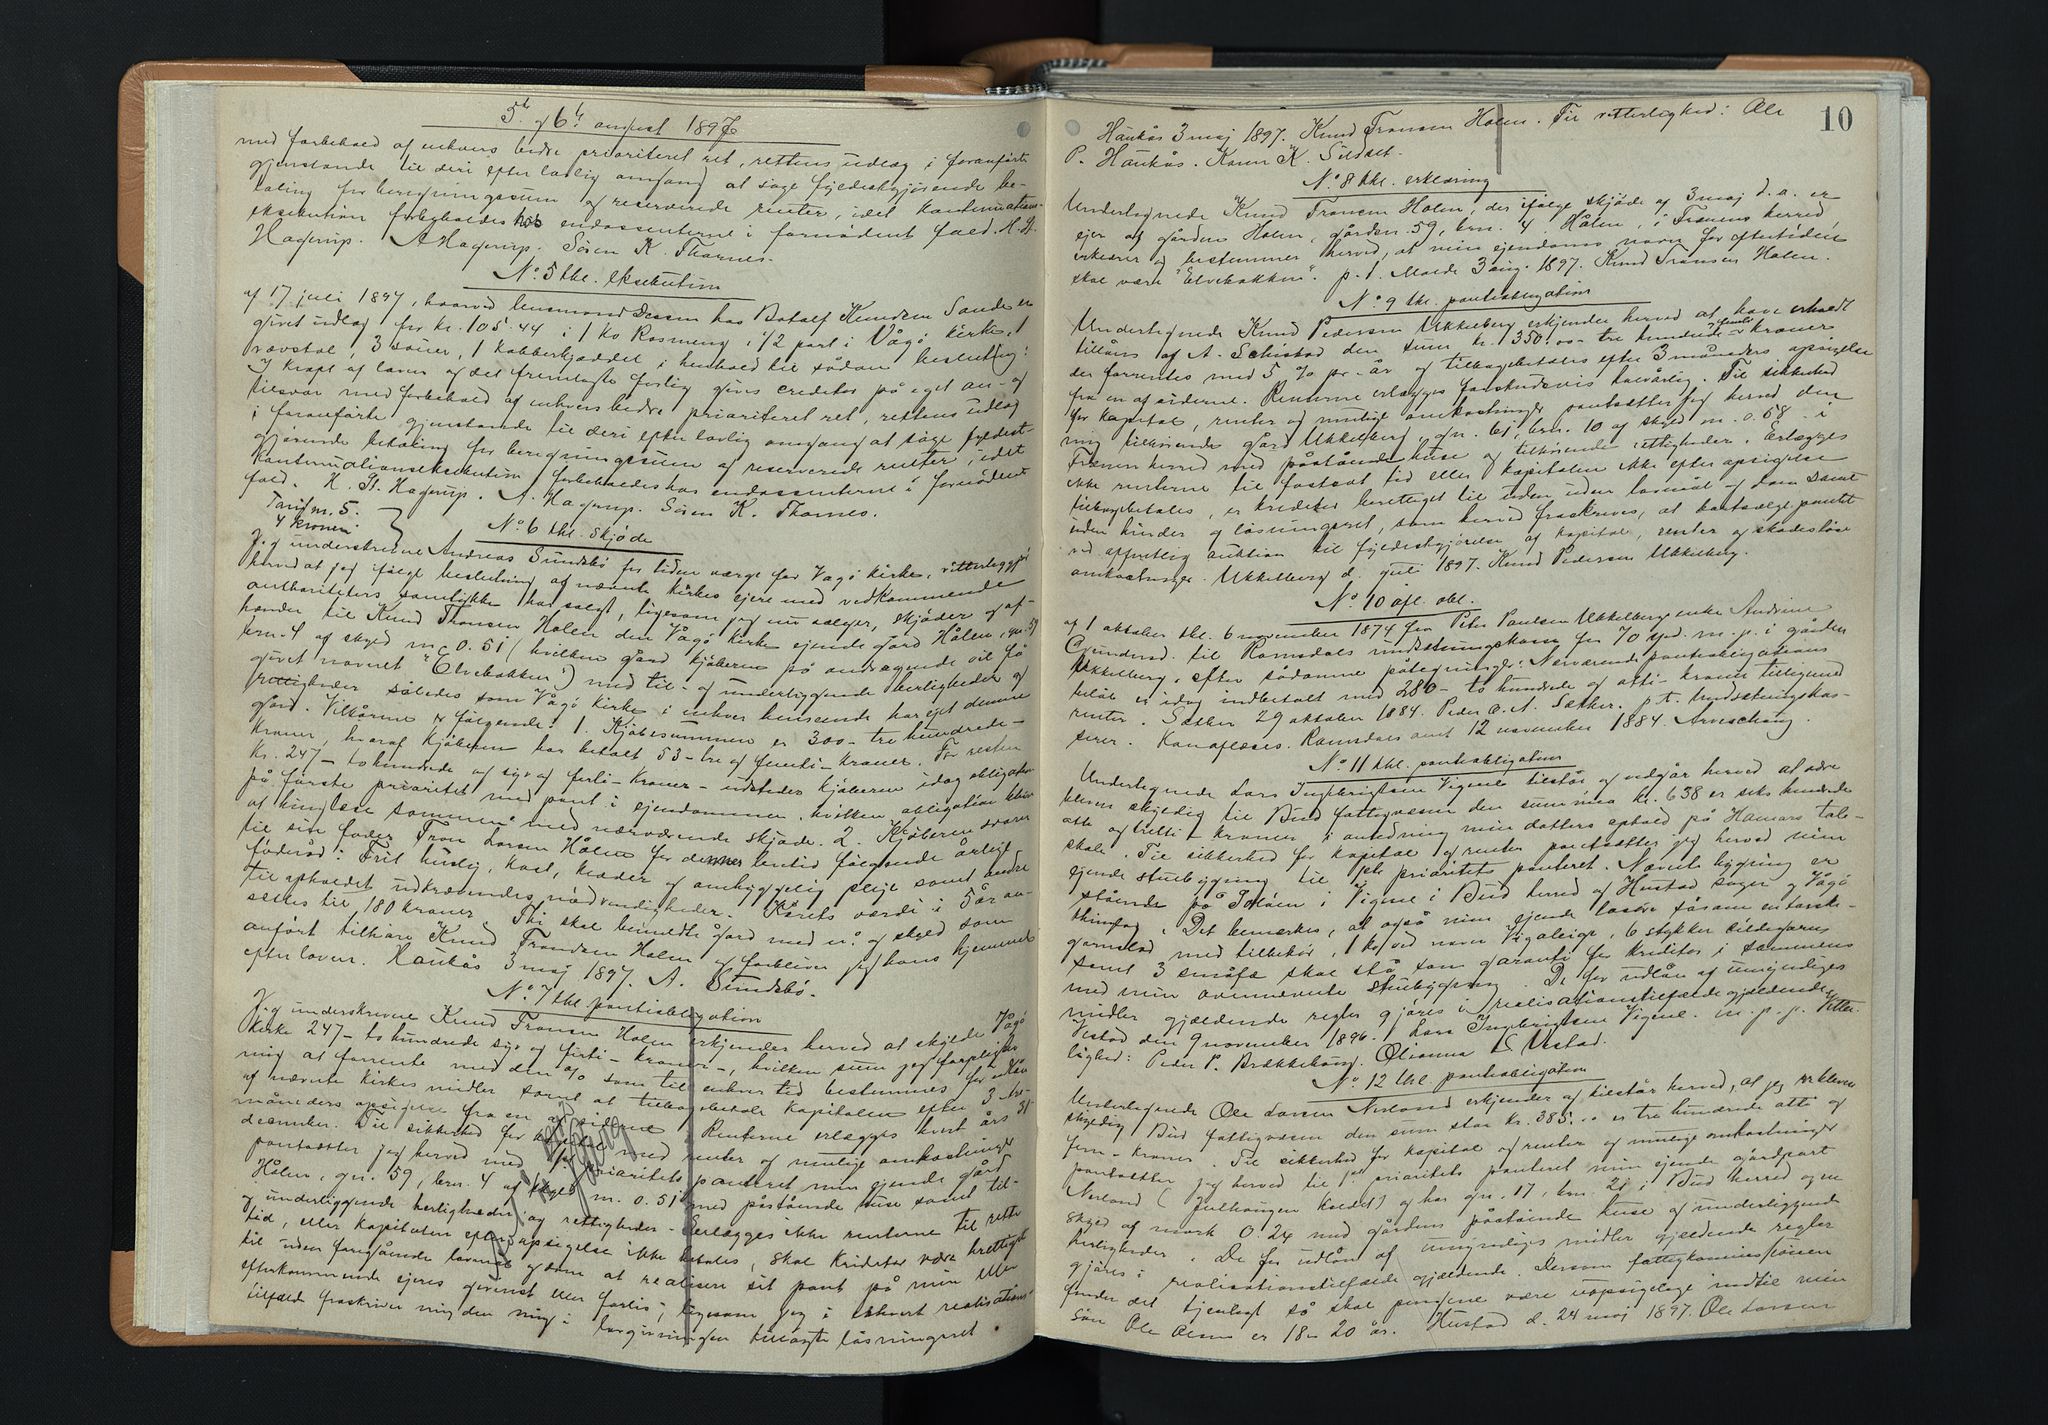 5te og 6te august 1897
med forbehold af enhvers bedre prioriteret ret, rettens udlæg i foranførte
gjenstande til deri efter lovlig omgang at søge fyldestgjørende be-
taling for beregningssum og reserverede renter, idet kontinuations-
eksekution forbeholdes hos endossenterne i fornødent fald. K. St.
Hagerup. A Hagerup. Søren K. Thornes.
No. 5 thl. eksekution
af 17 juli 1897, hvorved lensmand Dessen hos Botolf Knudsen Sande er
givet udlæg for kr. 105.44 i 1 ko Rosmeng, 1/2 part i Vågø kirke, 1
røvstøl, 3 sauer, 1 kobberkjeddel i henhold til sådan beslutning:
I kraft af loven og det fremlagte forlig gives creditor på eget an- og
tilsvar med forbehold af enhvers bedre prioriteret ret, rettens udlæg
i foranførte gjenstande til deri efter lovlig omgang at søge fyldest-
gjørende betaling for beregningssum og reserverede renter, idet
kontinuationseksekution forbeholdes hos endossenterne i fornødent
fald. K. St. Hagerup. A. Hagerup. Søren K. Thornes.
Tarif m. 5.
4 kroner
No. 6 thl. skjøde
Jeg underskrevne Andreas Sundsbø for tiden værge for Vågø kirke, vitterliggjør
herved at jeg ifølge beslutning af nævnte kirkes ejere med vedkommende
authoriteters samtykke har solgt, ligesom jeg nu sælger, skjøder og af-
hænder til Knud Thronsen Holen den Vågø kirke ejende gård Hålen, gn. 59
brn. 4 af skyld m. 0.51 (hvilken gård kjøberen på andragende vil få
givet navnet "Elvebakken") med til- og underliggende herligheder og
rettigheder således som Vågø kirke i enhver henseende har ejet denne
gård. Vilkårene er følgende: 1. Kjøbesummen er 300 - tre hundrede -
kroner, hvoraf kjøberen har betalt 53 - tre og femti - kroner. For resten
kr. 247 - tohundrede og syv og førti - kroner - udsteder kjøberen idag obligation
på første prioritet med pant i ejendommen, hvilken obligation bliver
at thinglæse sammen med nærværende skjøde. 2. Kjøberen svarer
til sin fader Tron Larsen Hålen for dennes levetid følgende årligt
føderåd: Frit huslig, kost, klæder og omhyggelig pleje samt andre
til opholdet udkrævendes nødvendigheder. Kårets værdi i 5 år an-
sættes til 180 kroner. Thi skal bemeldte gård med nr. og skyld som
anført tilhøre Knud Trondsen Holen og forbliver jeg hans hjemmel
efter loven. Haukås 3 maj 1897. A. Sundsbø.
No. 7 thl. pantobligation
Jeg underskrevne Knud Tronsen Holen erkjender herved at skylde Vågø
kirke 247 - tohundrede syv og førti - kroner -, hvilken sum jeg forpligter
mig at forrente med den % som til enhver tid bestemmes for udlån
af nævnte kirkes midler samt at tilbagebetale kapitalen efter 3 - tre
måneders opsigelse fra en af siderne. Renterne erlægges hvert års 31
december. Til sikkerhed for kapital med renter og mulige omkostninger
pantsætter jeg herved med 1ste prioritets panteret min ejende gård
Hålen, gn. 59, brn. 4 af skyld m. 0.51 med påstående huse samt til-
og underliggende herligheder og rettigheder. - Erlægges ikke renterne til rette
tid, eller kapitalen efter opsigelse ikke betales, skal kreditor være berettiget
til uden foregående lovmål og dom at realisere sit pant på min eller
efterkommende ejeres gevinst eller forlis, ligesom jeg i ethvert realisations-
tilfælde fraskriver mig den mig i lovgivningen tillagte løsningsret
10
Haukås 3 maj 1897. Knud Tronsen Holen. Til vitterlighed: Ole
P. Haukås. Karen K. Sildset.
No. 8 thl. erklæring
Undertegnede Knud Tronsen Holen, der ifølge skjøde af 3 maj d. a. er
ejer af gården Holen, gården. 59, brn. 4 Hålen, i Frænens herred,
erklærer og bestemmer herved, at min ejendoms navn for eftertiden
skal være "Elvebakken". p. t. Molde 3 aug. 1897. Knud Tronsen Holen.
No. 9 thl. pantobligation
Undertegnede Knud Pedersen Ukkelberg erkjender herved at have erholdt
tillåns af A. Schistad den sum kr. 350.00 - tre hundrede og femti - kroner
der forrentes med 5 % pr. år og tilbagebetales efter 3 måneders opsigelse
fra en af siderne. Renterne erlægges forskudsvis halvårlig. Til sikkerhed
for kapital, renter og mulige omkostninger pantsætter jeg herved den
mig tilhørende gård Ukkelberg, gn. 61, brn. 10 af skyld m. 0.68 i
Frænen herred med påstående huse og tilhørende rettigheder. Erlægges
ikke renterne til fastsat tid eller kapitalen ikke efter opsigelse
tilbagebetales, er kreditor berettiget til uden lovmål og dom samt
uden hinder og løsningsret, som herved fraskrives, at bortsælge pantet
ved offentlig auktion til fyldestgjørelse af kapital, renter og skadesløse
omkostninger. Ukkelberg d. juli 1897. Knud Pedersen Ukkelberg.
No. 10 afl. obl.
af 1 oktober thl. 6 november 1874 fra Peder Paulsen Ukkelbergs enke Andrine
Gjendersd. til Romsdals indsætningskasse for 70 spd. m. p. i gården
Ukkelberg, efter sådanne påtegninger: Nærværende pantobligations
beløb er idag indbetalt med 280 - to hundrede og otti - kroner tilligemed
renter. Sætker 29 oktober 1884. Peder O. A. Sætker. p. t. indsætningskas-
serer. Kan aflæses. Romsdals amt 12 november 1884. Arveschoug.
No. 11 thl. pantobligation
Undertegnede Lars Ingebrigtsen Vigene tilstår og vedgår herved at være
bleven skyldig til Bud fattigvæsen den summa kr. 638 er seks hundrede
otte og tretti - kroner i anledning min datters ophold på Hamars tale-
skole. Til sikkerhed for kapital og renter pantsætter jeg herved min
ejende stuebygning til 1ste prioritets panteret. Nævnte bygning er
stående på Toløen i Vigene i Bud herred af Hustad sogn og Vågø
thinglag. Det bemærkes, at også min ejende løsøre såsom en torske-
garnslod med tilbehør, 1 ko ved navn Vigaleige, 6 stykker sildegarns
samt 3 småfæ skal stå som garanti for kreditor i sammens
med min ovennævnte stuebygning. De for udlån af umyndiges
midler gjældende regler gjøres i realisationstilfælde gjældende.
Vestad den 9 november 1896. Lars Ingebrigtsen Vigene. m. p. p. Vitter-
lighed: Peder P. Brækkehaug. Olianna L. Vestad.
No. 12 thl. pantobligation
Undertegnede Ole Larsen Nerland erkjender og tilstår herved, at jeg er bleven
skyldig Bud fattigvæsen den sum stor kr. 385.00 er tre hundrede otti og
fem - kroner. Til sikkerhed for kapital og renter og mulige omkostninger
pantsætter jeg herved til 1ste prioritets panteret min ejende gårdpart
Nerland (Julhaugen kaldet) og har gn. 17, brn. 21 i Bud herred og en
skyld af mark 0.24 med gårdens påstående huse og underliggende
herligheder. De for udlån af umyndiges midler gjældende regler
gjøres i realisationstilfælde gjældende. Dersom fattigkommissionen
finder det tjenligt så skal pengene være uopsigelige indtil min
søn Ole Olsen er 18 a 20 år. Hustad d. 24 maj 1897. Ole Larsen